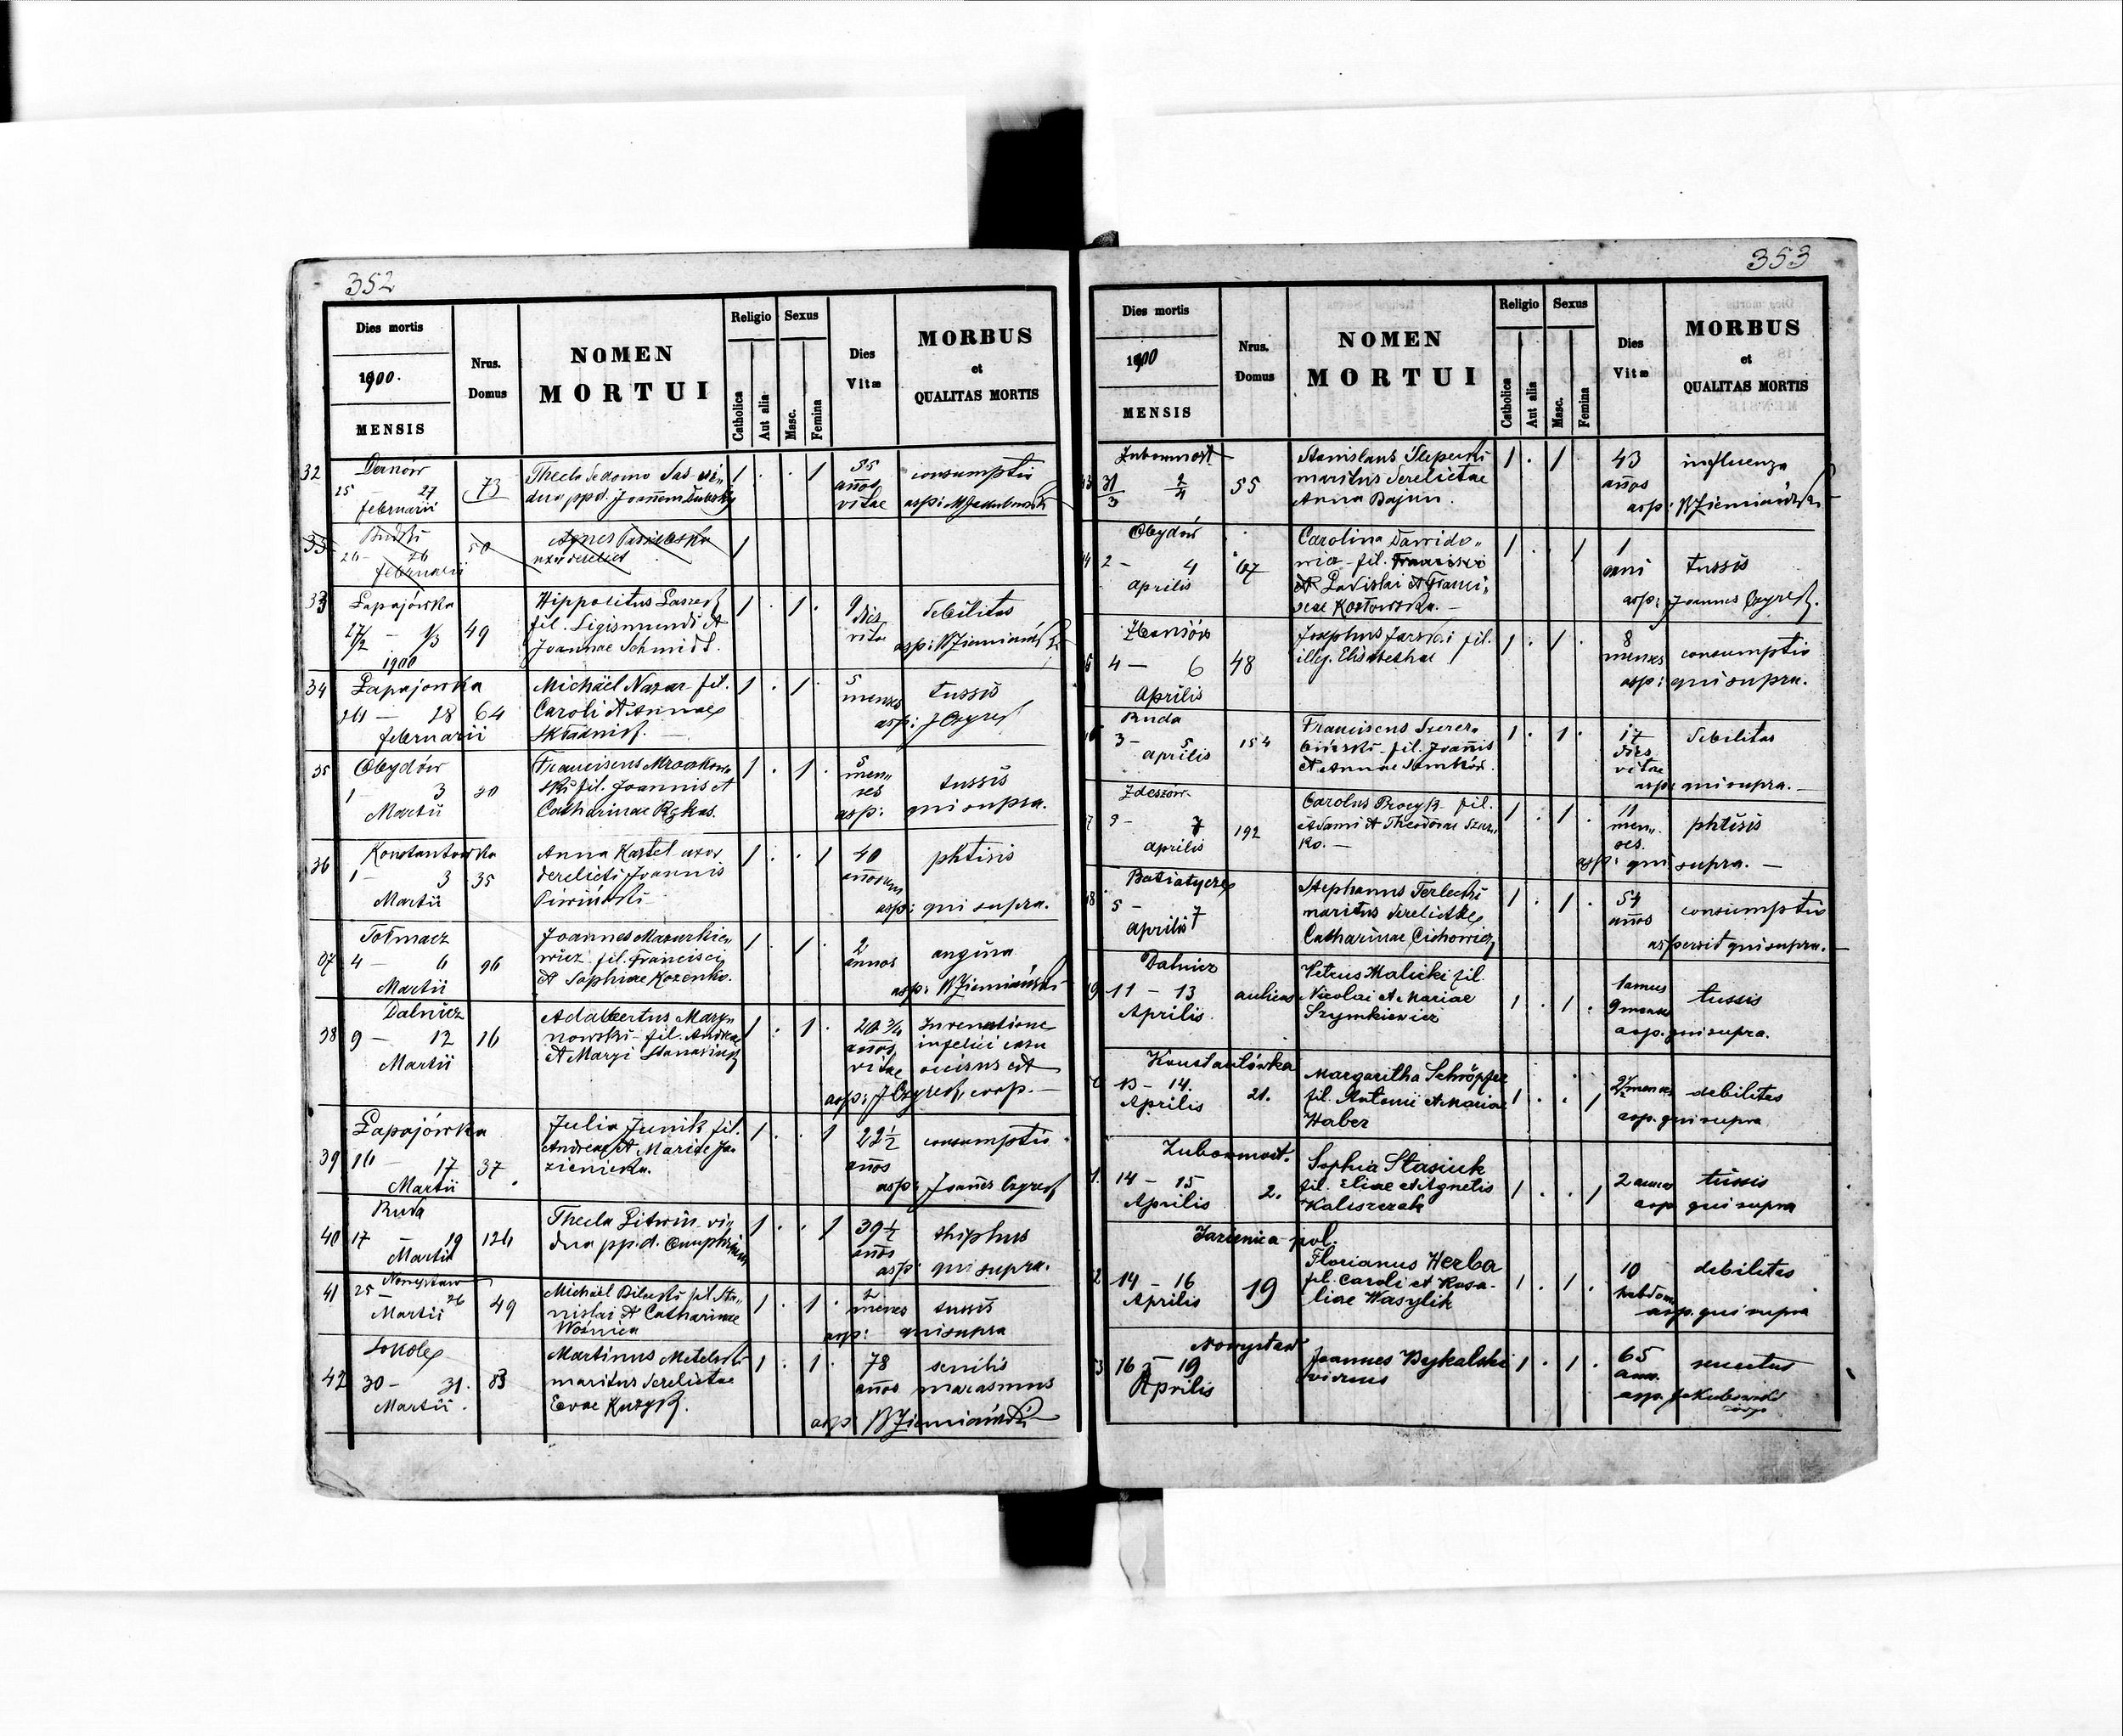 352
Dies mortis
1900.
MENSIS
Nrus.
Domus
NOMEN
MORTUI
Religio
Catholica
Aut alia
Sexus
Masc.
Femina
Dies
Vitæ
MORBUS
et
QUALITAS MORTIS
32
25 27
februarii
73
Thecla de domo Sas vi„
dua pp d. Joannem
1 . . 1
55
annos
vitae
consumptio
asp:
26 26
februarii
50
Agnes
uxor derelict
1
33
Łapajówka
27/2 — 1/3
1900
49
Hippolitus
fil. Sigismundi et
Joannae Schmidt.
1 . 1 .
9 dies
vitae
debilitas
asp: W Ziemiański
34
Łapajowka
26 — 28
februarii
64
Michäel Nazar fil.
Caroli et Annae
1 . 1 .
5
menses
tussis
asp: J Czyrek
35
Obydów
1 3
Martii
30
Franciscus Mroczkow
ski fil. Joannis et
Catharinae
1 . 1 .
5
men„
ses
tussis
asp: qui supra.
36
Konstantowka
1 — 3
Martii
35
Anna Kastel uxor
derelicti Joannis
1 . . 1
40
annorum
phtisis
asp: qui supra.
37
Tołmacz
4 — 6
Martii
96
Joannes Mazurkie„
wicz fil. Francisci
et Sophiae Kozenko.
1 . 1 .
2
annos
angina
asp: W Ziemiański
38
Dalnicz
9 — 12
Martii
16
Adalbertus Mary„
nowski fil. Andreae
et Maryi
1 . 1 .
20 3/4
annos
vitae
In venatione
infelici casu
occisus est
asp: J Czyrek, coop.
39
Łapajówka
16 — 17
Martii
37
Julia Junik fil.
Andreae et Mariae Ja„
zienicka.
1 . . 1
22 1/2
annos
consumptio
asp: Joannes Czyrek
40
Ruda
17 — 19
Martii
126
Thecla Litwin vi„
dua pp.d.
1 . . 1
39 1/2
annos
thiphus
asp: qui supra.
41
25 — 26
Martii
49
Michäel Bilecki fil. Sta„
nislai et Catharinae
Woźnica
1 . 1 .
2
menses
tussis
asp: qui supra
42
Sokole
30 — 31.
Martii.
83
Martinus Metelski
maritus derelictae
Evae Kuzyk.
1 . 1 .
78
annos
senilis
marasmus
asp: W Ziemiański
353
Dies mortis
1900
MENSIS
Nrus.
Domus
NOMEN
MORTUI
Religio
Catholica
Aut alia
Sexus
Masc.
Femina
Dies
Vitæ
MORBUS
et
QUALITAS MORTIS
Zubowmost
31/3 2/4
55
Stanislaus Slepecki
maritus derelictae
Anna Bajun.
1 . 1
43
annos
influenza
asp: W Ziemiański
Obydów
2 — 4
Aprilis
67
Carolina Dawido„
wicz fil. Francisci
et Ladislai et Franci„
scae Kozłowska.
1 . 1
1
anni
tussis
asp: Joannes Czyrek.
4 — 6
Aprilis
48
Josephus Jarski fil.
illeg. Elisabethae
1 . 1 .
8
menses
consumptio
asp: qui supra.
Ruda
3 — 5
aprilis
154
Franciscus Szczer„
biński fil. Joannis
et Annae
1 . 1 .
17
dies
vitae
debilitas
asp: qui supra.
Zdeszów
3 — 7
aprilis
192
Carolus Procyk fil.
Adami et Theodorae Szew„
ko.
1 . 1 .
11
men„
ses.
phtisis
asp: qui supra.
Batiatycze
5 — 7
Aprilis
Stephanus Terlecki
maritus derelictae
Catharinae Cichowicz
1 . 1 .
54
annos
consumptio
aspersit qui supra.
Dalnicz
11 — 13
Aprilis
aulicus
Petrus Malicki fil
Nicolai et Mariae
Szymkiewicz
1 . 1 .
1 annus
9 menses
tussis
asp. qui supra.
Konstantówka
13 — 14.
Aprilis
21.
Margaritha Schröpfer
fil. Antonii et Mariae
Haber
1 . . 1
2 1/2 menses
debilitas
asp. qui supra
Zubowmost.
14 — 15
Aprilis
2.
Sophia Stasiuk
fil. Eliae et Agnetis
Kaliszczak
1 . . 1
2 annos
tussis
asp qui supra
Jazienica pol.
14 — 16
Aprilis
19
Florianus Herba
fil. Caroli et Rosa-
liae Wasylik
1 . 1 .
10
hebdom.
debilitas
asp. qui supra
Nowystaw
16 — 19
Aprilis
Joannes Bykalski
viduus
1 . 1 .
65
ann.
senectus
asp. Jakubowski